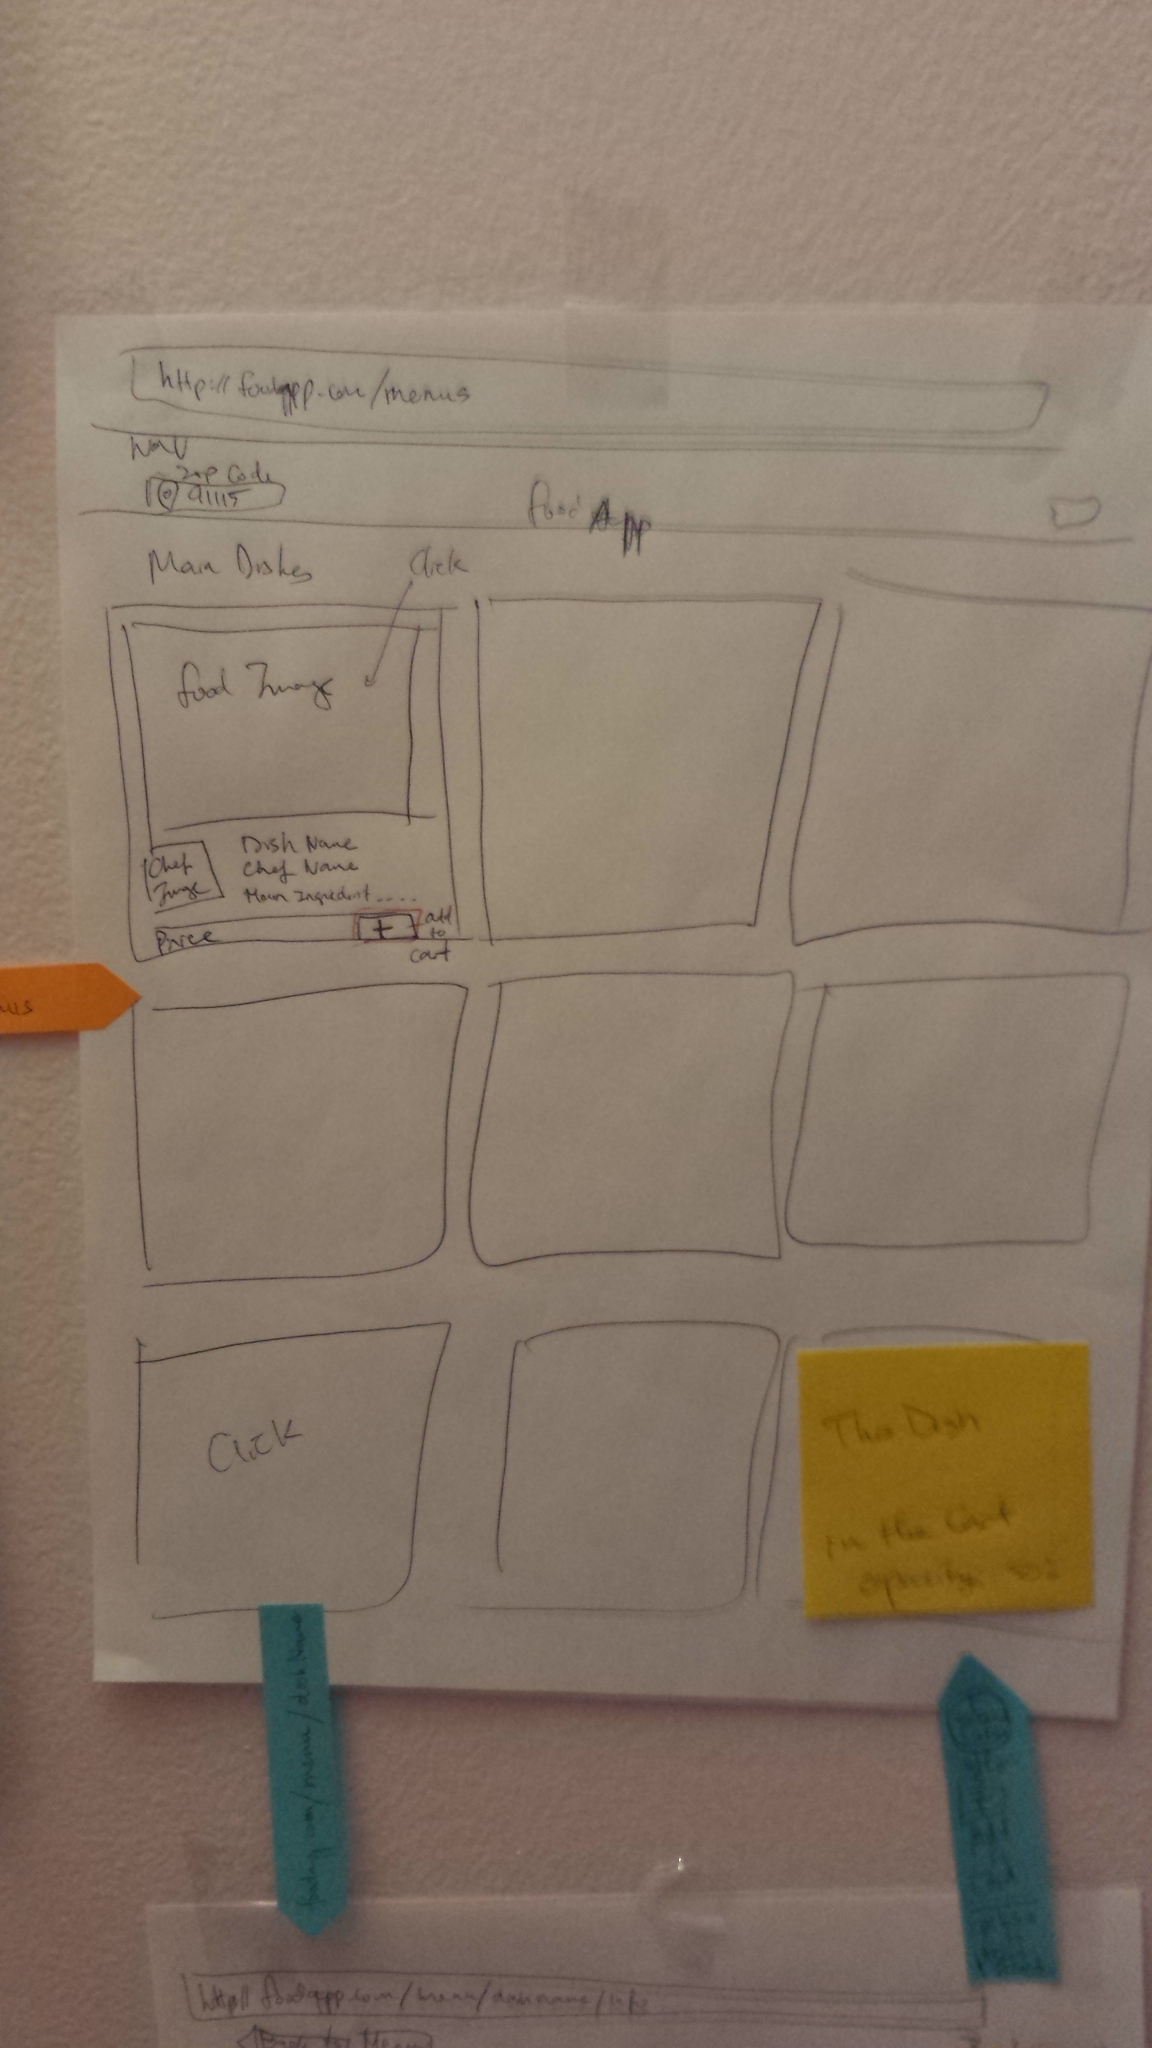 http://foodapp.com/menus
Nav
Zip Code
91115
food App
Main Dishes
Click
food Image
Chef
Image
Dish Name
Chef Name
Main Ingredient ....
Price
+
add
to
cart
us
Click
This Dish
in the Cart
opacity
foodapp.com/menu/dishName
http://foodapp.com/menu/dishname/info
Back to Menu